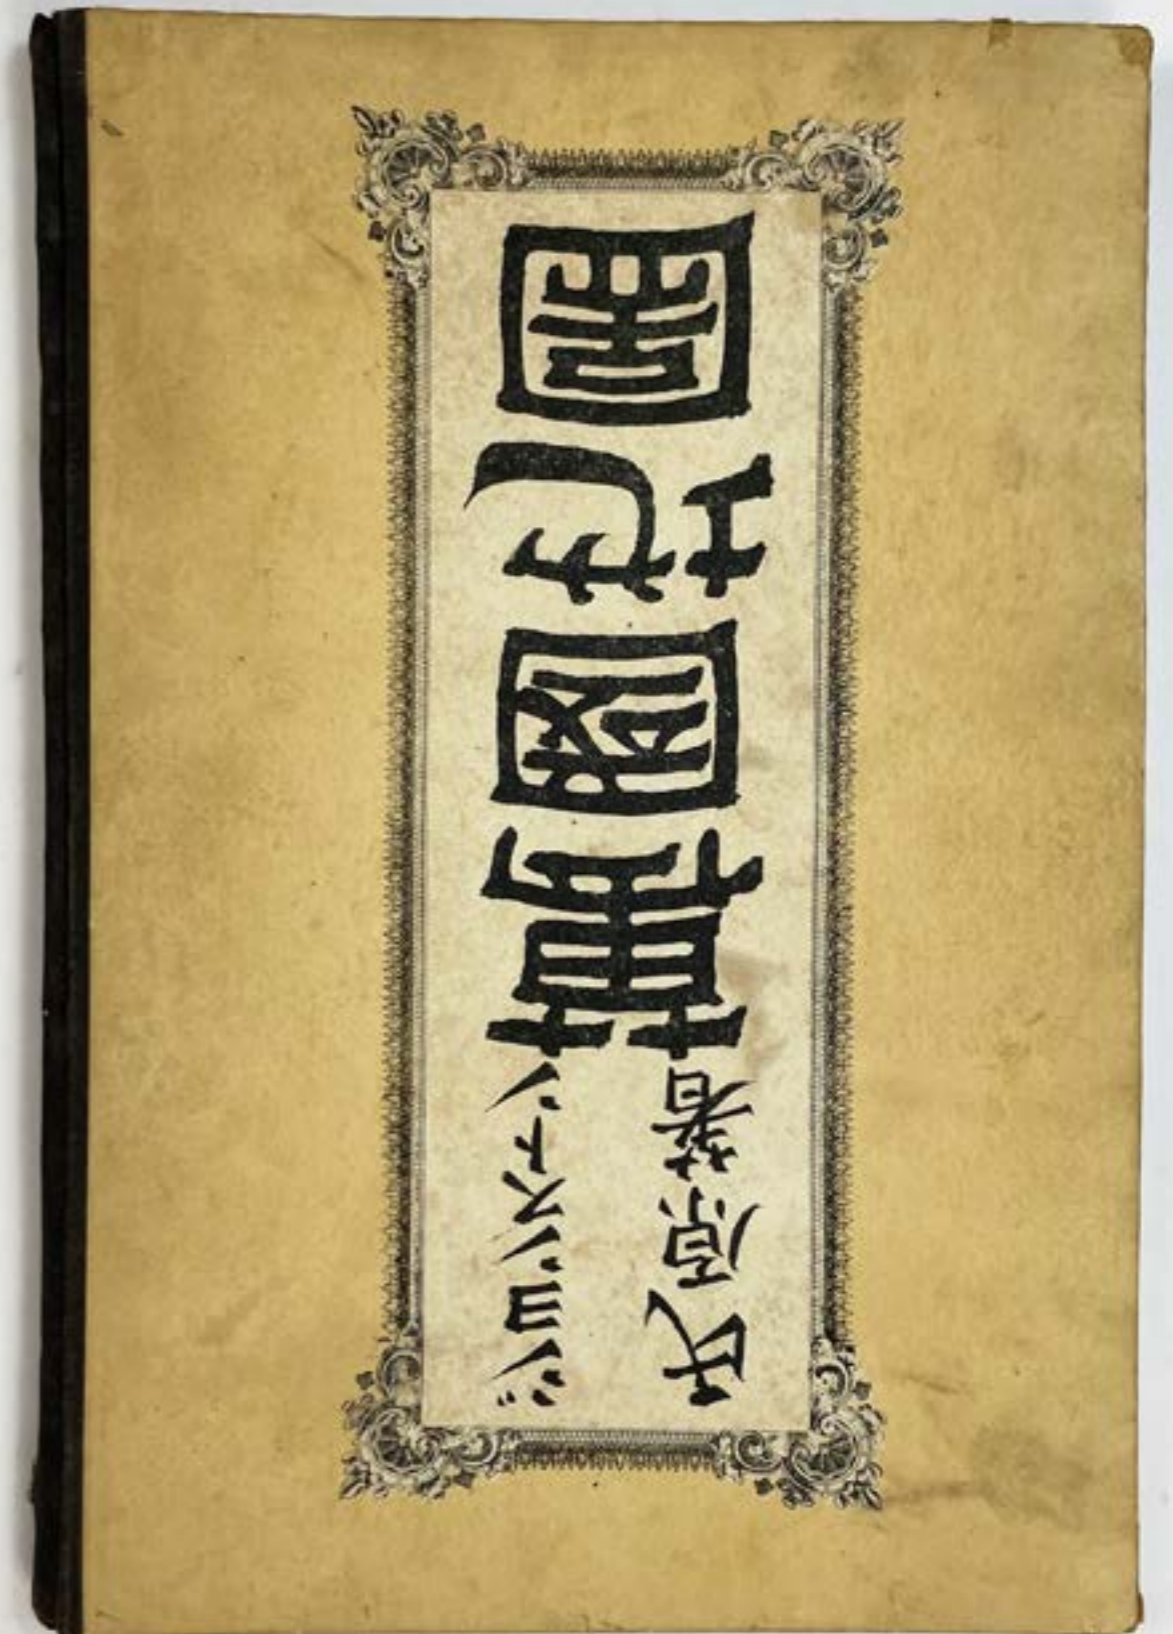 ジヨンストン
氏原著
萬國地圖